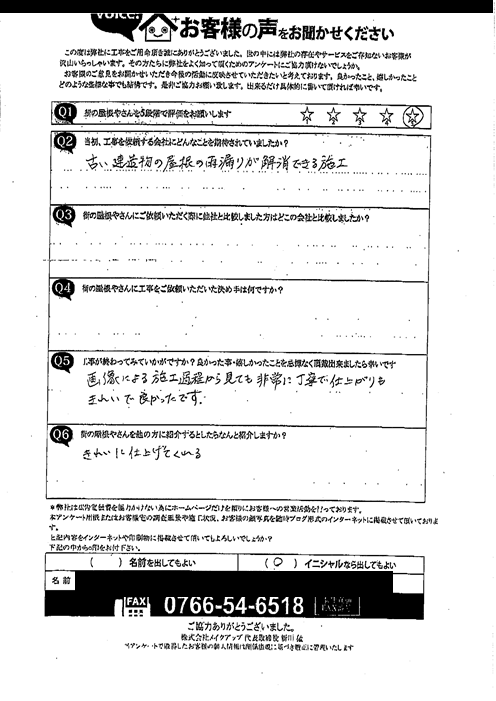 voice!
お客様の声をお聞かせください
この度は弊社に工事をご用命頂き誠にありがとうございました。世の中には弊社の存在やサービスをご存知ないお客様が
沢山いらっしゃいます。その方たちに弊社をよく知って頂くためのアンケートにご協力頂けないでしょうか。
お客様のご意見をお聞かせいただき今後の活動に反映させていただきたいと考えております。良かったこと、嬉しかったこと
どのような些細な事でも結構です。是非ご協力お願い致します。出来るだけ具体的に書いて頂ければ幸いです。
Q1 街の屋根やさんを5段階で評価をお願いします
Q2 当初、工事を依頼する会社にどんなことを期待されていましたか?
古い建造物の屋根の雨漏りが解消できる施工
Q3 街の屋根やさんにご依頼いただく際に他社と比較しました方はどこの会社と比較しましたか?
Q4 街の屋根やさんに工事をご依頼いただいた決め手は何ですか?
Q5 工事が終わってみていかがですか?良かった事・嬉しかったことを忌憚なく頂戴出来ましたら幸いです
画像による施工過程から見ても非常に丁寧で仕上がりも
きれいで良かったです。
Q6 街の屋根やさんを他の方に紹介するとしたらなんと紹介しますか?
きれいに仕上げてくれる
*弊社は広告宣伝費を協力かけない為にホームページだけを頼りにお客様への営業活動を行っております。
本アンケート用紙またはお客様宅の調査風景や施工状況、お客様の顔写真を随時ブログ形式のインターネットに掲載させて頂いておりま
す。
上記内容をインターネットや印刷物に掲載させて頂いてもよろしいでしょうか?
下記の中から○印をお付け下さい。
( ) 名前を出してもよい
(○) イニシャルなら出してもよい
名前
FAX 0766-54-6518
ご協力ありがとうございました。
株式会社メイクアップ 代表取締役
当アンケートで取得したお客様の個人情報は関係法規に基づき厳正に管理いたします